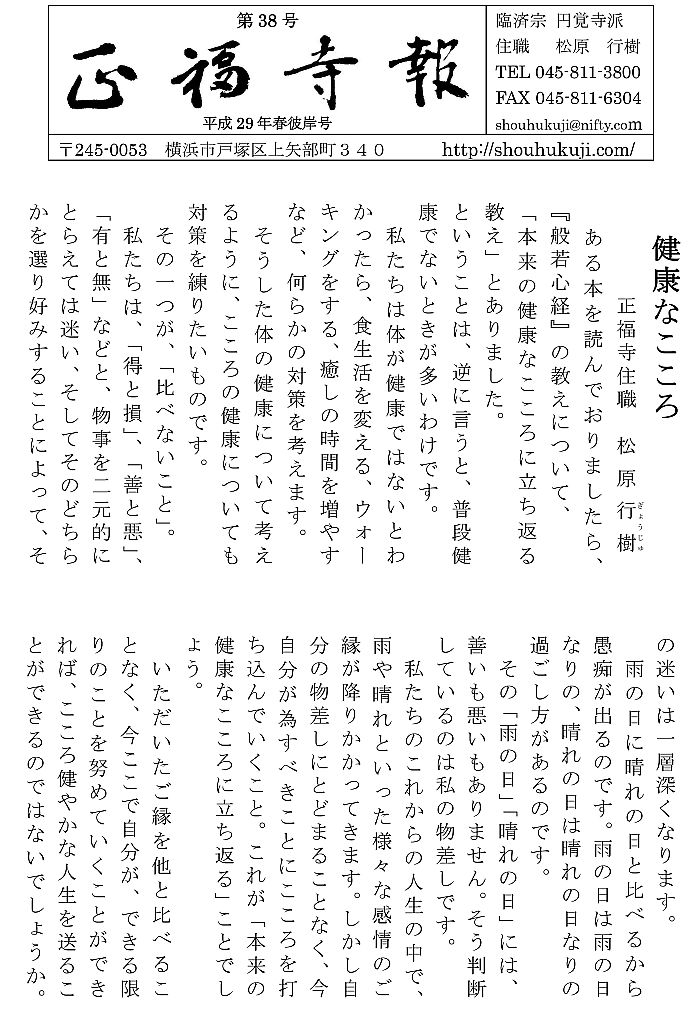 第38号
正福寺報
平成29年春彼岸号
臨済宗 円覚寺派
住職 松原 行樹
TEL 045-811-3800
FAX 045-811-6304
shouhukuji@nifty.com
〒245-0053 横浜市戸塚区上矢部町３４０ http://shouhukuji.com/
健康なこころ
正福寺住職 松原行樹
ぎょうじゅ
ある本を読んでおりましたら、
『般若心経』の教えについて、
「本来の健康なこころに立ち返る
教え」とありました。
ということは、逆に言うと、普段健
康でないときが多いわけです。
私たちは体が健康ではないとわ
かったら、食生活を変える、ウォー
キングをする、癒しの時間を増やす
など、何らかの対策を考えます。
そうした体の健康について考え
るように、こころの健康についても
対策を練りたいものです。
その一つが、「比べないこと」。
私たちは、「得と損」、「善と悪」、
「有と無」などと、物事を二元的に
とらえては迷い、そしてそのどちら
かを選り好みすることによって、そ
の迷いは一層深くなります。
雨の日に晴れの日と比べるから
愚痴が出るのです。雨の日は雨の日
なりの、晴れの日は晴れの日なりの
過ごし方があるのです。
その「雨の日」「晴れの日」には、
善いも悪いもありません。そう判断
しているのは私の物差しです。
私たちのこれからの人生の中で、
雨や晴れといった様々な感情のご
縁が降りかかってきます。しかし自
分の物差しにとどまることなく、今
自分が為すべきことにこころを打
ち込んでいくこと。これが「本来の
健康なこころに立ち返る」ことでし
ょう。
いただいたご縁を他と比べるこ
となく、今ここで自分が、できる限
りのことを努めていくことができ
れば、こころ健やかな人生を送るこ
とができるのではないでしょうか。